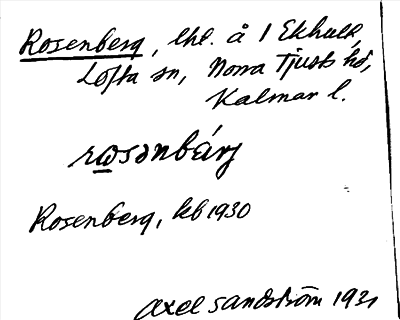 Rosenberg, lhl. å 1 Ekhult,
Lofta sn, Norra Tjusts hd,
Kalmar l.
rωsənbárj
Rosenberg, kb 1930
Axel Sandström 1931